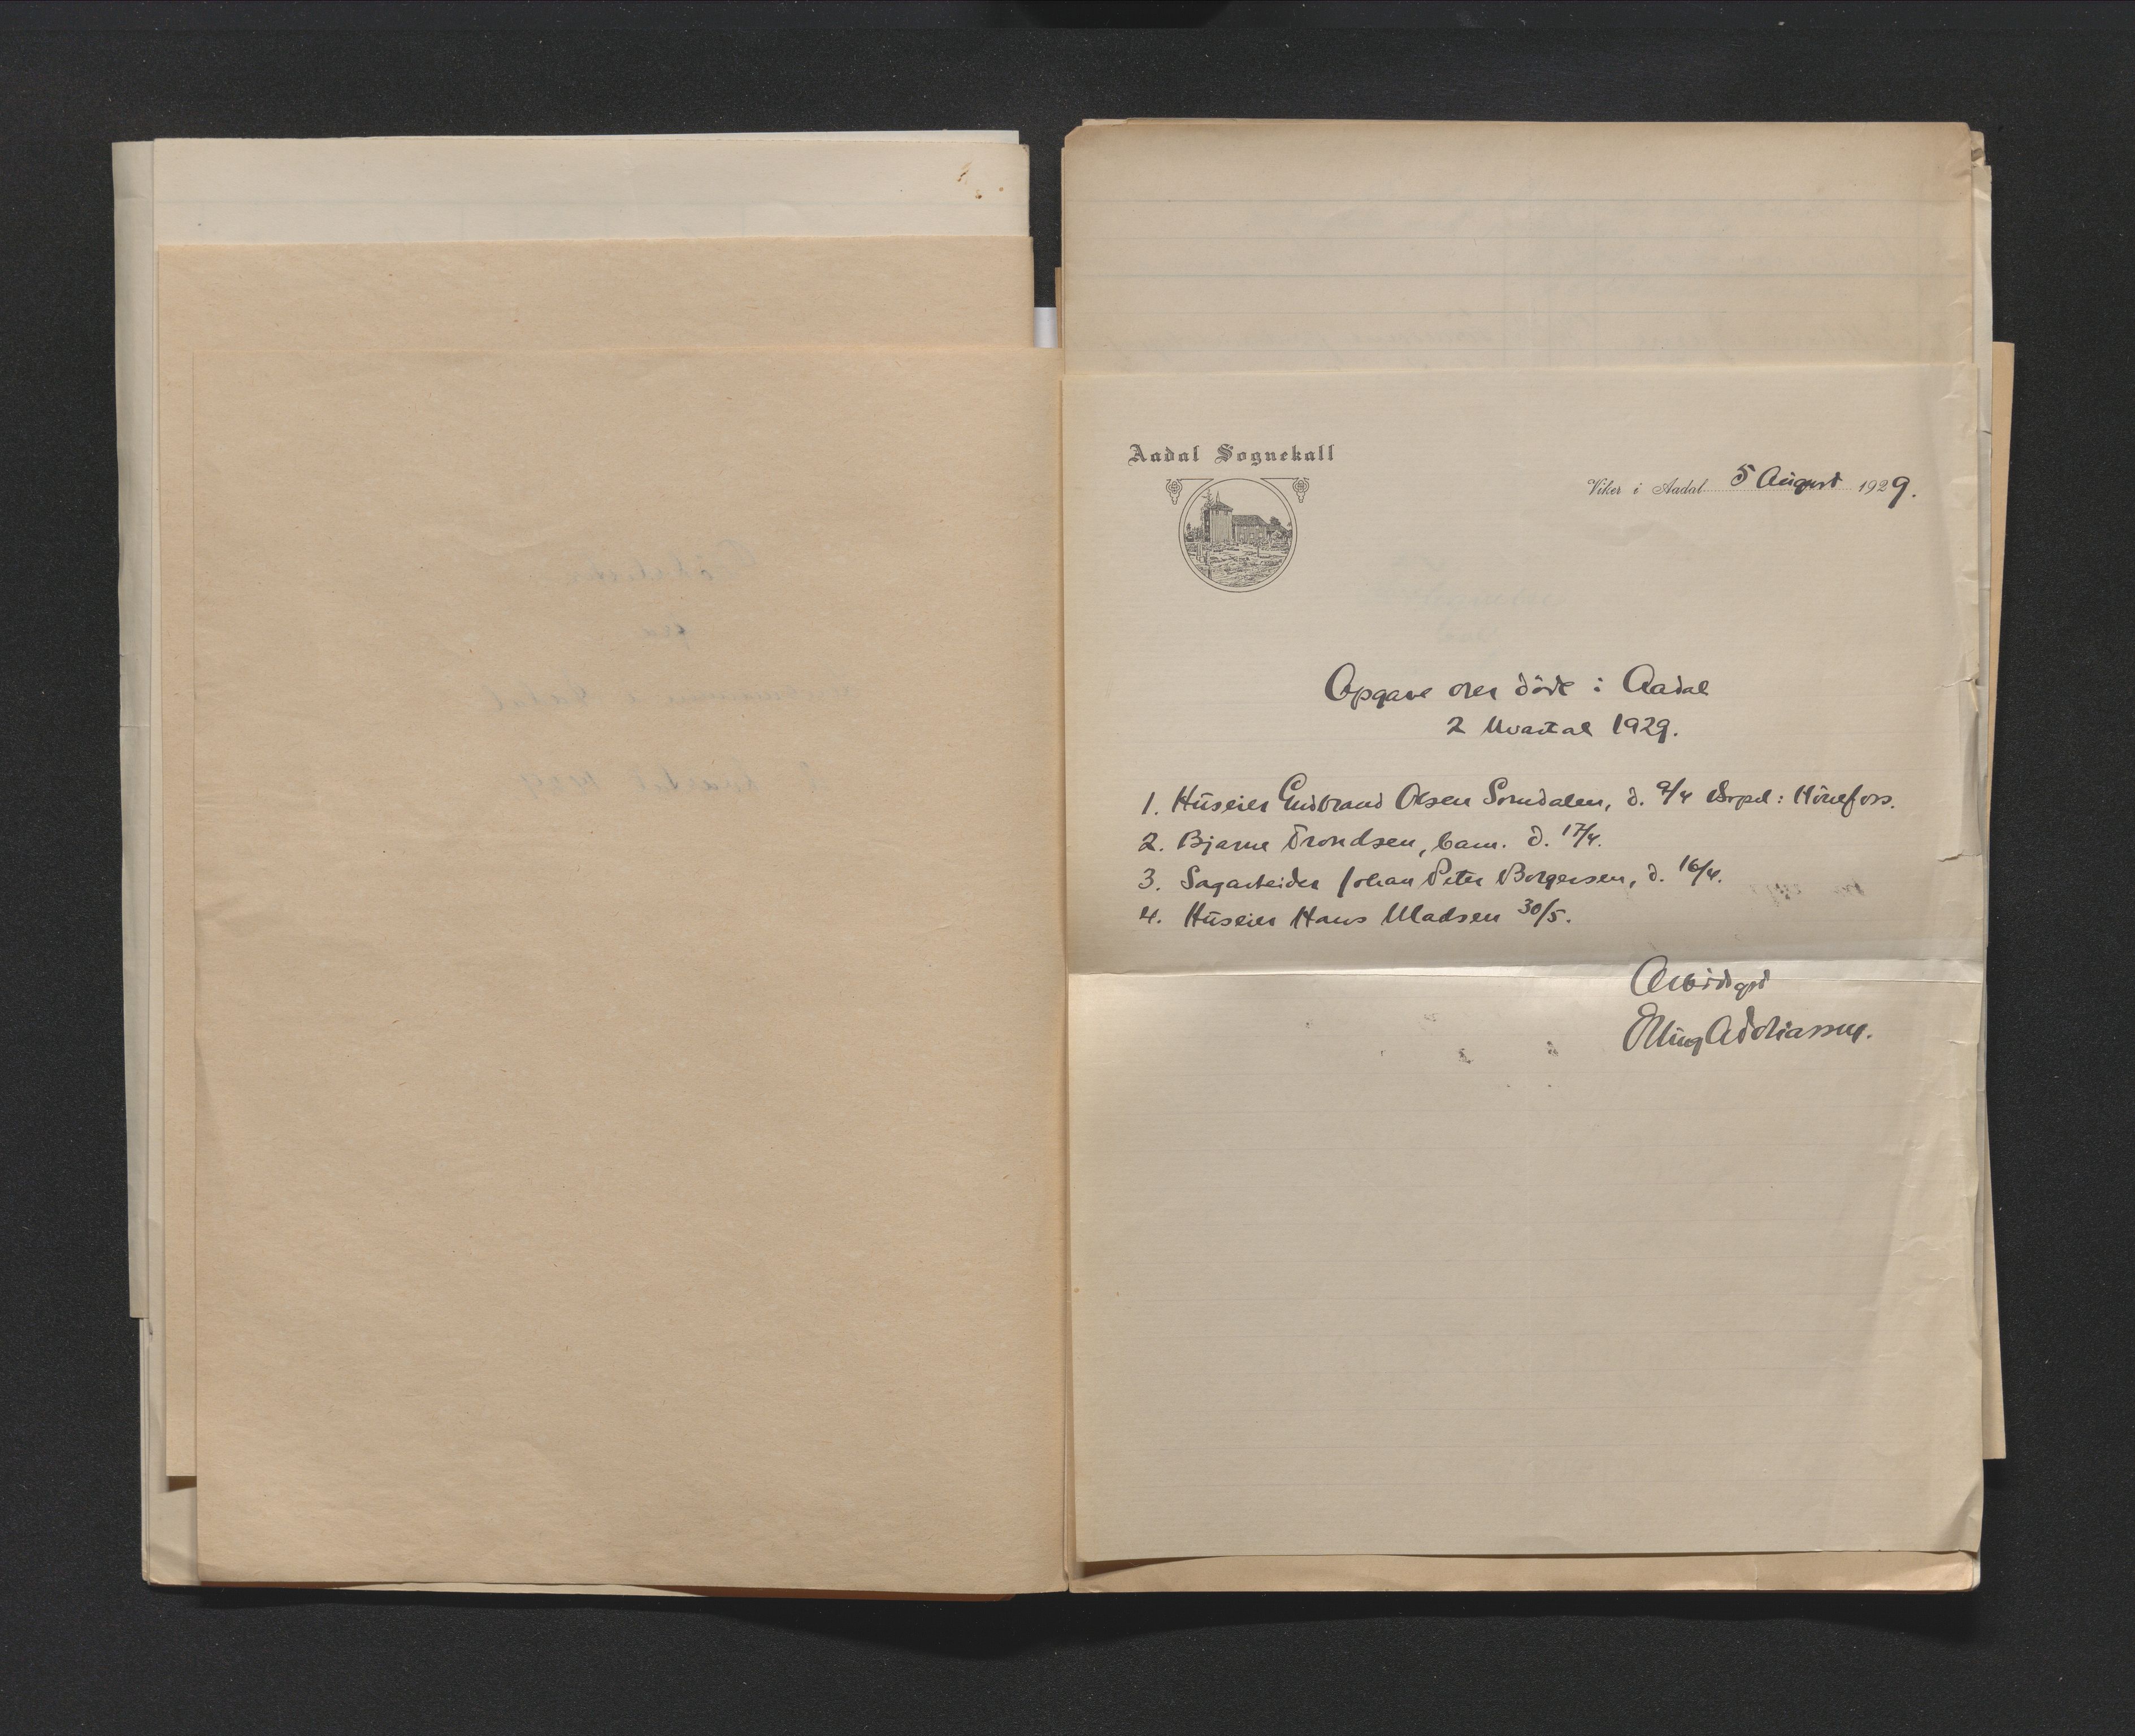 Aadal Sognekall
Viker i Aadal 5 August 1929.
Opgave over döde i Aadal
2 Kvartal 1929.
1. Huseier Gudbrand Olsen Somdalen, d. 9/4 Bopel: Hönefoss.
2. Bjarne Trondsen, barn. d. 17/4.
3. Sagarbeider Johan Peter Borgersen, d. 16/4.
4. Huseier Hans Madsen 30/5.
Ærbödigst